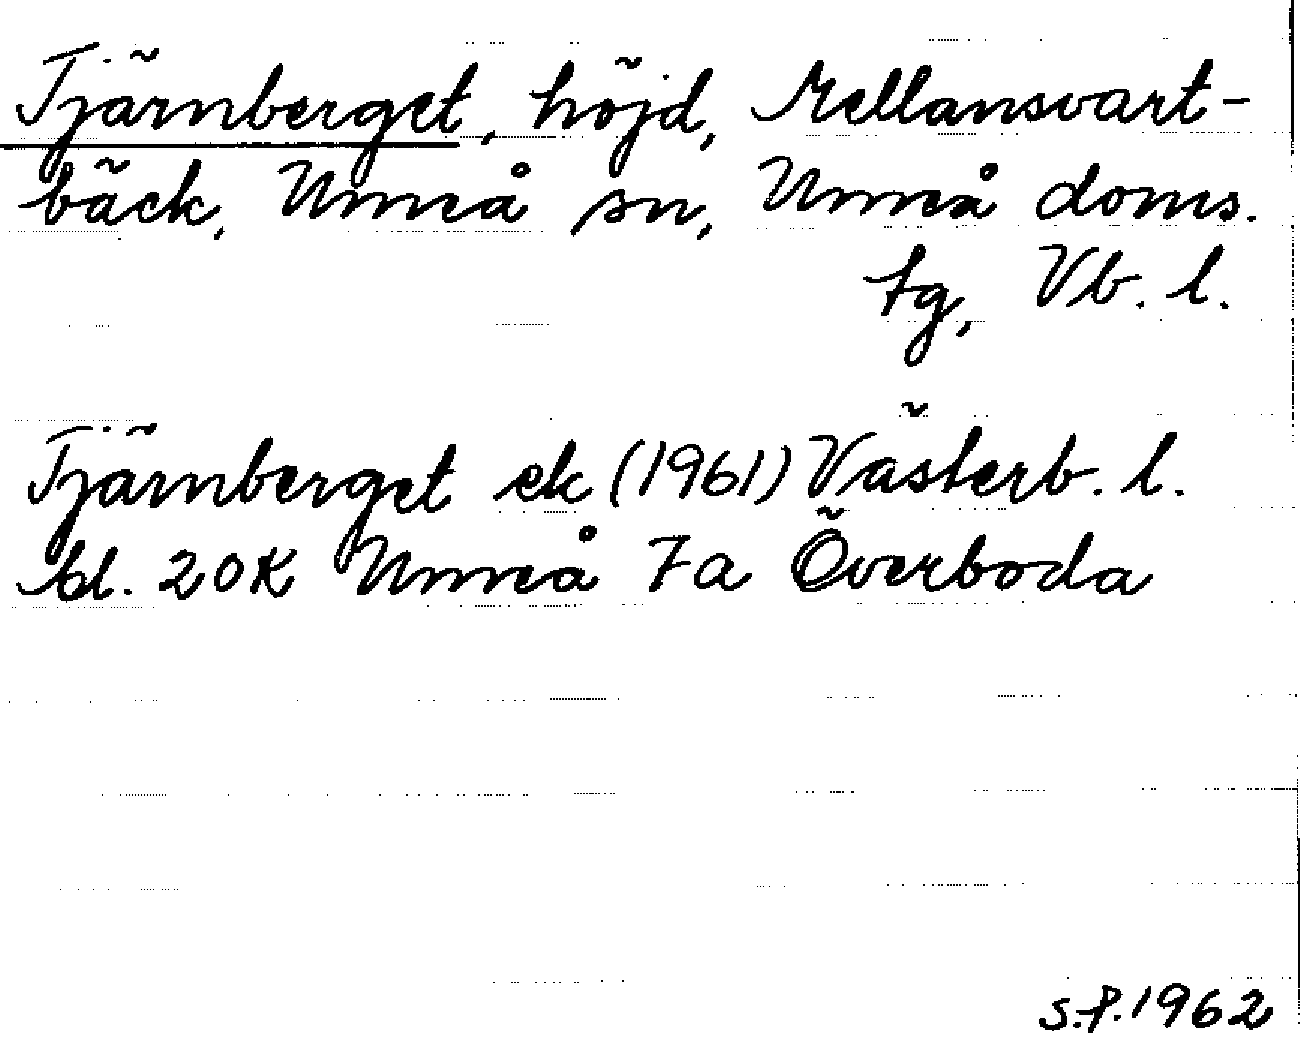 Tjärnberget, höjd, Mellansvart-
bäck, Umeå sn, Umeå doms.
tg, Vb. l.
Tjärnberget ek (1961) Västerb. l.
bl. 20K Umeå 7a Överboda
S.P. 1962